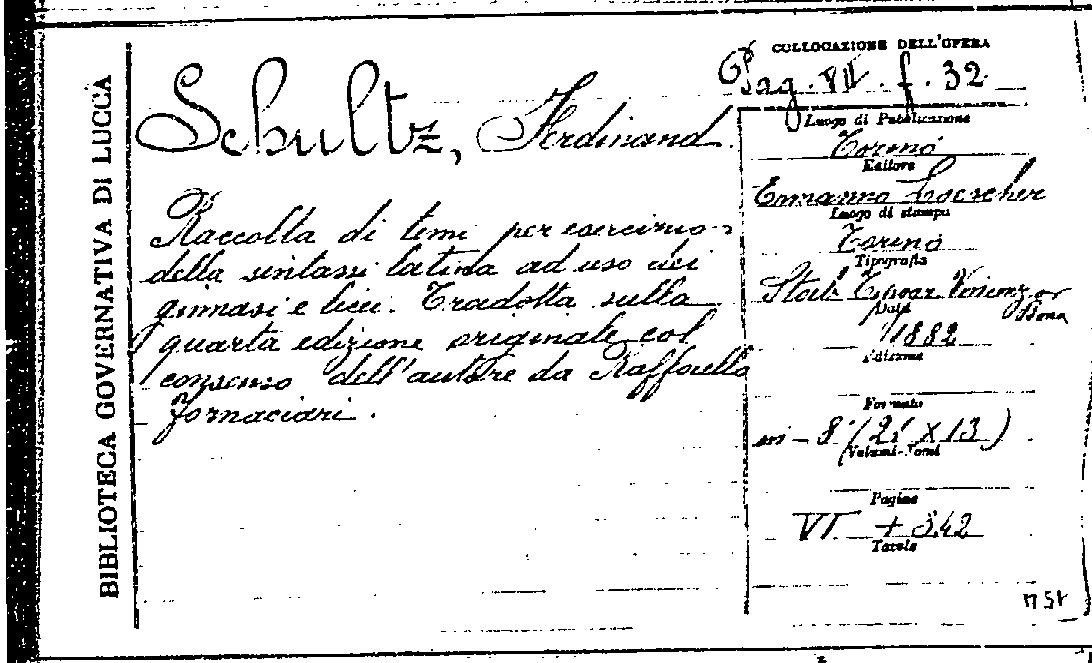 BIBLIOTECA GOVERNATIVA DI LUCCA
Schultz, Ferdinand.
Raccolta di temi per esercizio
della sintassi latina ad uso dei
ginnasi e licei. Tradotta sulla
quarta edizione originale col
consenso dell'autore da Raffaello
Fornaciari.
COLLOCAZIONE DELL'OPERA
Pag. VII. f. 32
Luogo di Pubblicazione
Torino
Editore
Ermanno Loescher
Luogo di stampa
Torino
Tipografia
Stab. Tipogr. Vincenzo
Bona
Data
1882
Edizione
Formato
in-8° (21 x 13)
Volumi-Tomi
Pagine
VI + 342
Tavole